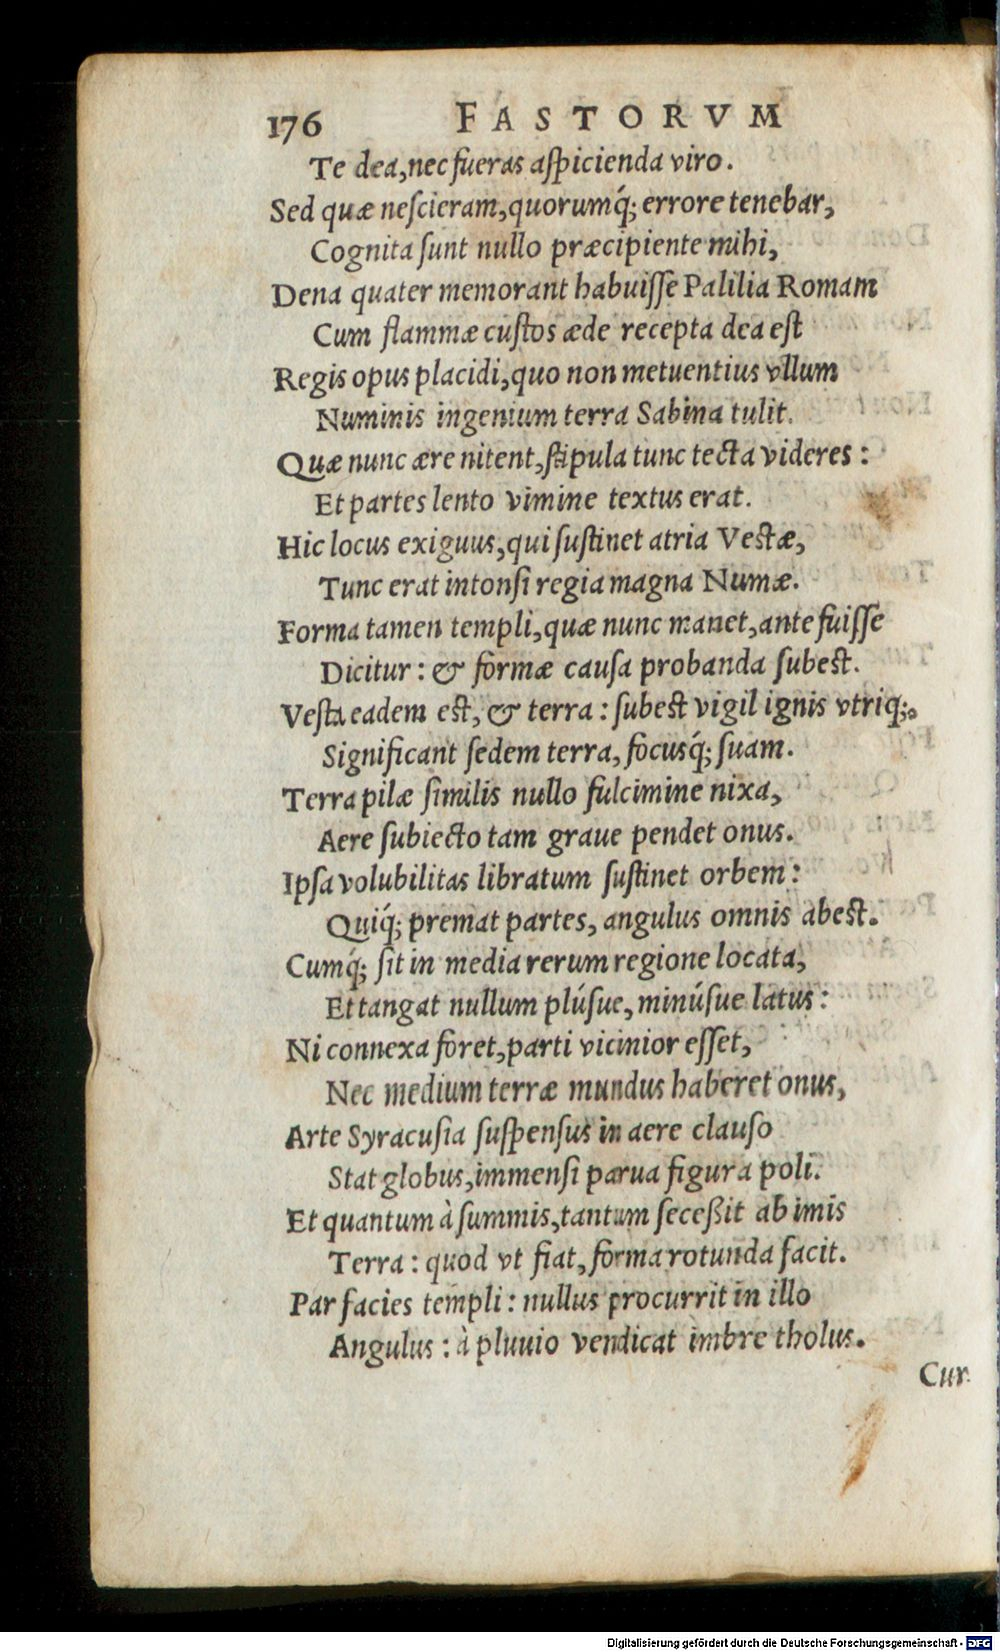 176 FASTORVM
Te dea, nec fueras aſpicienda viro.
Sed quæ neſcieram, quorumq́; errore tenebar,
Cognita ſunt nullo præcipiente mihi,
Dena quater memorant habuiſſe Palilia Romam
Cum flammæ cuſtos æde recepta dea eſt
Regis opus placidi, quo non metuentius vllum
Numinis ingenium terra Sabina tulit.
Quæ nunc ære nitent, ſtipula tunc tecta videres:
Et partes lento vimine textus erat.
Hic locus exiguus, qui ſuſtinet atria Veſtæ,
Tunc erat intonſi regia magna Numæ.
Forma tamen templi, quæ nunc manet, ante fuiſſe
Dicitur: & formæ cauſa probanda ſubeſt.
Veſta eadem eſt, & terra: ſubeſt vigil ignis vtriq;.
Significant ſedem terra, focusq́; ſuam.
Terra pilæ ſimilis nullo fulcimine nixa,
Aere ſubiecto tam graue pendet onus.
Ipſa volubilitas libratum ſuſtinet orbem:
Quiq́; premat partes, angulus omnis abeſt.
Cumq́; ſit in media rerum regione locata,
Et tangat nullum plúſue, minúſue latus:
Ni connexa foret, parti vicinior eſſet,
Nec medium terræ mundus haberet onus,
Arte Syracuſia ſuſpenſus in aere clauſo
Stat globus, immenſi parua figura poli.
Et quantum à ſummis, tantum ſeceßit ab imis
Terra: quod vt fiat, forma rotunda facit.
Par facies templi: nullus procurrit in illo
Angulus: à pluuio vendicat imbre tholus.
Cur
Digitalisierung gefördert durch die Deutsche Forschungsgemeinschaft - DFG